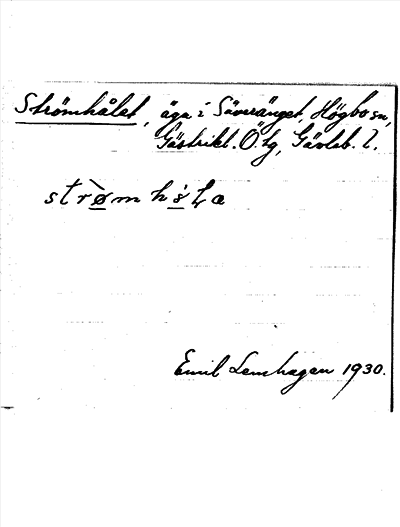 Strömhålet, äga i Säveränget, Högbo sn,
Gästrikl. Ö. tg, Gävleb. l.
strø̀m hs̀ɬæ
Emil Lemhagen 1930.